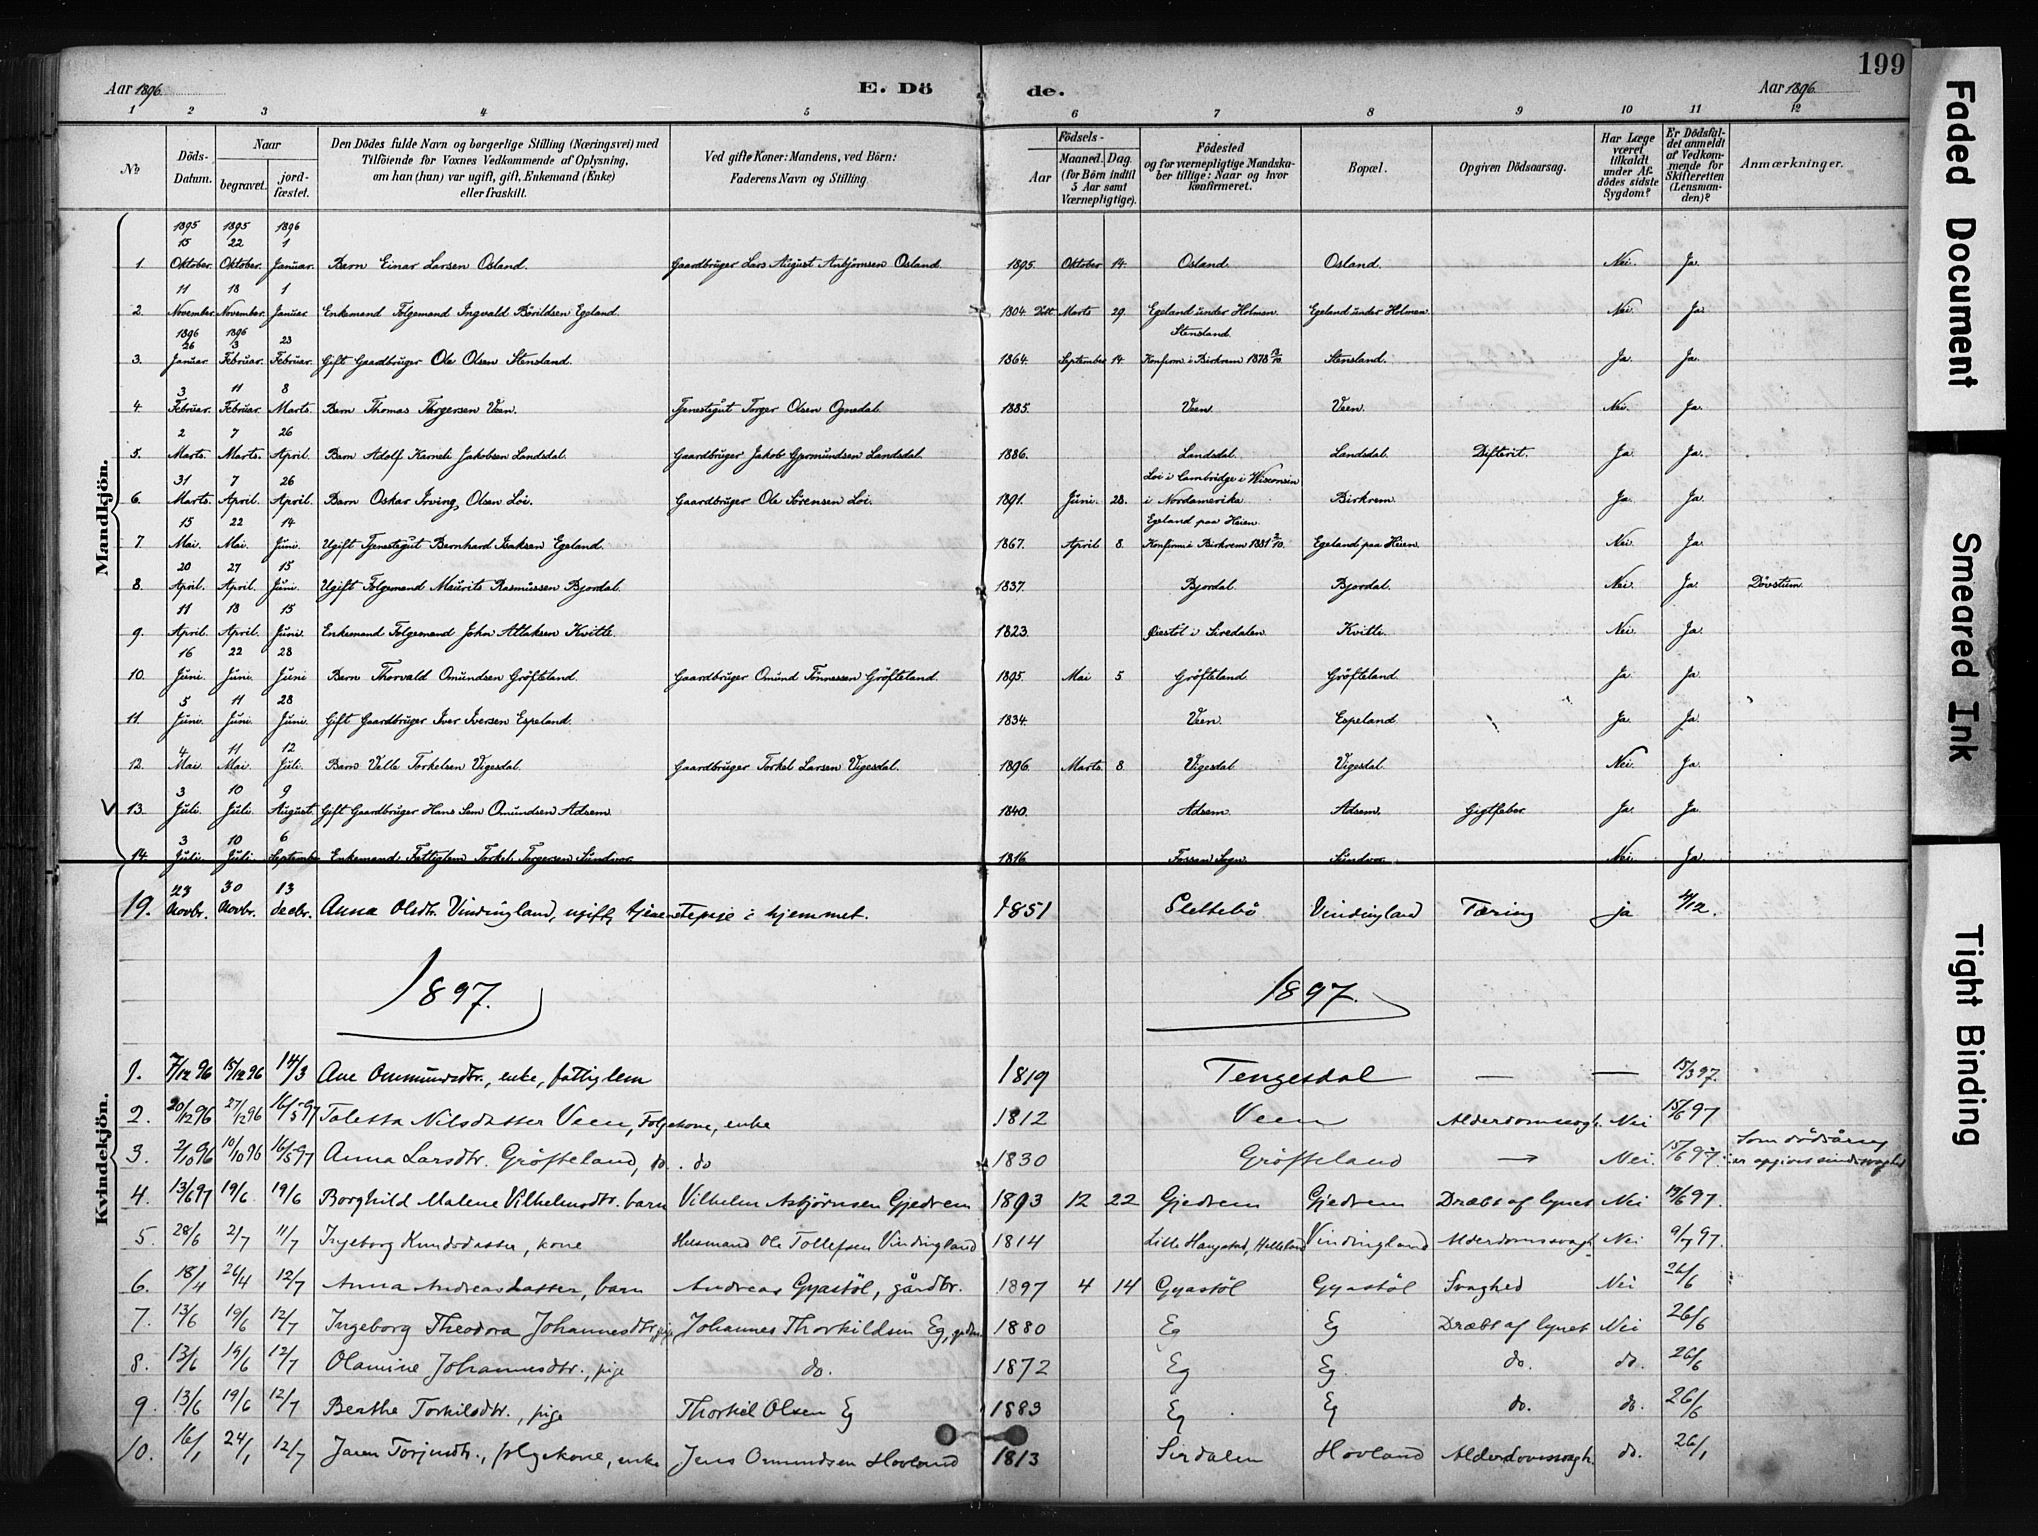 199
Aar 1896. E. Dö de. Aar 1896.
1 2 3 4 5 6 7 8 9 10 11 12
No
Döds-Datum.
Naar
begravet.
jord-fæstet.
Den Dödes fulde Navn og borgerlige Stilling (Næringsvei) med
Tilföiende for Voxnes Vedkommende af Oplysning,
om han (hun) var ugift, gift, Enkemand (Enke)
eller fraskilt.
Ved gifte Koner: Mandens, ved Börn:
Faderens Navn og Stilling.
Födsels-
Aar
Maaned. Dag.
(for Börn indtil
5 Aar samt
Værnepligtige).
Födested
og for værnepligtige Mandska-
ber tillige: Naar og hvor
konfirmeret.
Bopæl.
Opgiven Dödsaarsag.
Har Læge
været
tilkaldt
under Af-
dödes sidste
Sygdom?
Er Dödsfal-
det anmeldt
af Vedkom-
mende for
Skifteretten
(Lensman-
den)?
Anmærkninger.
Mandkjön.
1895 1895 1896
15 22 1
1. Oktober. Oktober. Januar. Barn Einar Larsen Osland. Gaardbruger Lars August Asbjørnsen Osland. 1895. Oktober 14. Osland. Osland. Nei. Ja.
11 18 1
2. November. November. Januar. Enkemand Folgemand Ingvald Bårildsen Egeland. 1804. Døbt Marts 29. Egeland under Holmen. Egeland under Holmen. Nei. Ja.
1896 1896
26 3 23 Stensland.
3. Januar. Februar. Februar. Gift Gaardbruger Ole Olsen Stensland. 1864. September 14. Konfirm. i Birkrem 1878 Stensland. Ja. Ja.
3 11 8
4. Februar. Februar. Marts. Barn Thomas Torgersen Veen. Tjenestegut Torger Olsen Ognedal. 1885. Veen. Veen. Nei. Ja.
2 7 26
5. Marts. Marts. April. Barn Adolf Karneli Jakobsen Landsdal. Gaardbruger Jakob Gjermundsen Landsdal 1886. Landsdal. Landsdal. Difterit. Ja. Ja.
31 7 26 Loi i Cambridge i Wisconsin
6. Marts. April. April. Barn Oskar Irving Olsen Loi. Gaardbruger Ole Sørensen Loi. 1891. Juni. 28. i Nordamerika. Birkrem. Ja. Ja.
15 22 14 Egeland paa Heien.
7 Mai. Mai. Juni. Ugift Tjenestegut Bernhard Isaksen Egeland. 1867. April 8. Konfirm. i Birkrem 1881 Egeland paa Heien. Nei. Ja.
20 27 15
8. April. April. Juni. Ugift Folgemand Maurits Rasmussen Bjordal. 1837. Bjordal. Bjordal. Nei. Ja. Døvstum.
11 18 15
9. April. April. Juni. Enkemand Folgemand John Atlaksen Kvitle. 1823. Øiestøl i Siredalen. Kvitle. Nei. Ja.
16 22 28
10. Juni. Juni. Juni Barn Thorvald Omundsen Gröfteland. Gaardbruger Omund Tønnessen Gröfteland. 1895. Mai 5 Gröfteland. Gröfteland. Ja Ja
5 11 28
11. Juni. Juni. Juni. Gift Gaardbruger Iver Iversen Espeland. 1834. Veen. Espeland. Ja. Ja.
4 11 12
12. Mai. Mai. Juli. Barn Valle Torkelsen Vigesdal. Gaardbruger Torkel Larsen Vigesdal. 1896. Marts. 8. Vigesdal. Vigesdal. Nei. Ja.
3 10 9
13. Juli. Juli. August. Gift Gaardbruger Hans Sem Omundsen Adsem. 1840. Adsem. Adsem. Gigtfeber. Ja. Ja.
3 10 6
14. Juli. Juli. September. Enkemand. Fattiglem Torkel Torgersen Sundvor. 1816. Fossan Sogn. Sundvor. Nei. Ja.
Kvindekjön.
23 30 13
19. Novbr. Novbr. decbr. Anna Olsdtr. Vindingland, ugift, tjenestepige i hjemmet. 1851 Slettebö Vindingland Tæring ja 4/12.
1897. 1897.
1. 7/12 96 15/12 96 14/3 Ane Ommundsdtr., enke, fattiglem 1819 Tengesdal — — 15/3 97.
2. 20/12 96 27/12 96 16/5 97 Taletta Nilsdatter Veen, Folgekone, enke 1812 Veen Alderdomssvagh. Nei 15/6 97
3. 2/10 96 10/10 96 16/5 97 Anna Larsdtr. Gröfteland, do. do 1830 Gröfteland → Nei. 15/6 97. Som dödsårsag er opgivet sindssvaghed
4. 13/6 97 19/6. 19/6 Borghild Malene Vilhelmsdtr. barn Vilhelm Asbjörnsen Gjedrem 1893 12 22 Gjedrem Gjedrem Dræbt af lynet Nei 19/6 97.
5. 28/6 2/7 11/7 Ingeborg Knudsdatter, kone Husmand Ole Tollefsen Vindingland 1814 Lille Haugstad, Helleland Vindingland Alderdomssvagh. Nei 9/7 97.
6. 18/4 26/4 12/7 Anna Andreasdatter, barn Andreas Gyastöl, gårdbr. 1897 4 14 Gyastöl Gyastöl Svaghed Nei 26/6
7. 13/6 19/6 12/7 Ingeborg Theodora Johannesdtr., pige Johannes Thorkildsen Eg, 1880 Eg Eg Dræbt af lynet Nei 26/6
8. 13/6 19/6 12/7 Olamine Johannesdtr., pige do. 1872 Eg Eg. do. do. 26/6
9. 13/6 19/6 12/7 Berthe Torkilsdtr., pige Thorkel Olsen Eg 1883 Eg Eg do. do. 26/6
10. 16/1 24/1 12/7 Jaren Torjusdtr., folgekone, enke Jens Ommundsen Hovland 1813 Sirdalen Hovland Alderdomssvagh. do. 26/1
Faded Document
Smeared Ink
Tight Binding